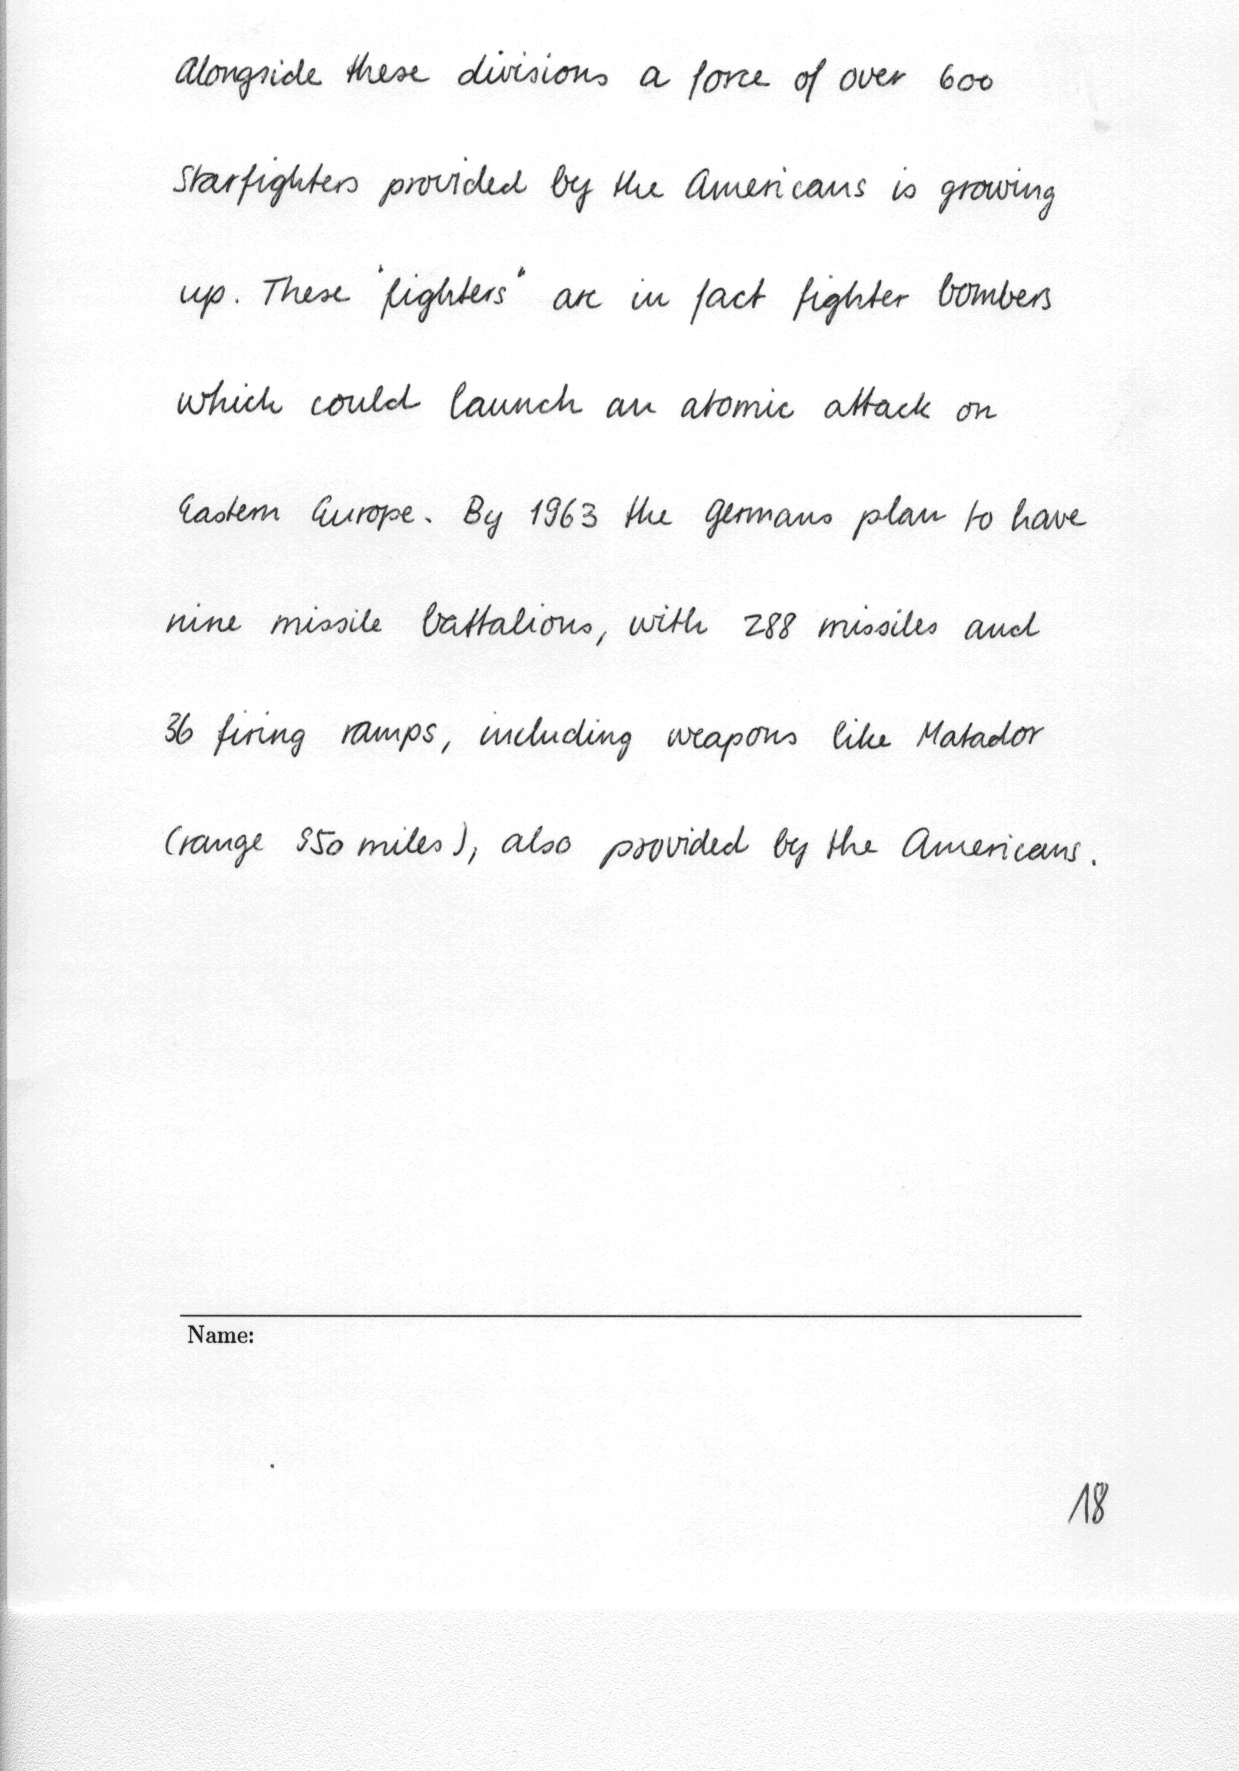 Alongside these divisions a force of over 600
Starfighters provided by the Americans is growing
up. These "fighters" are in fact fighter bombers
which could launch an atomic attack on
Eastern Europe. By 1963 the Germans plan to have
nine missile battalions, with 288 missiles and
36 firing ramps, including weapons like Matador
(range 950 miles), also provided by the Americans.
Name:
18